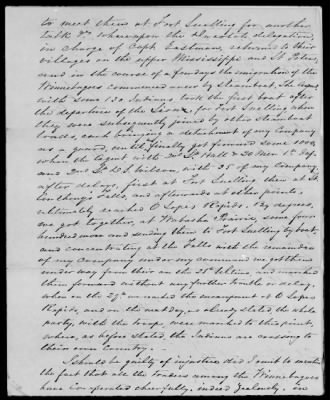 to meet them at Fort Snelling for another
talk &c Whereupon the Dacotah delegation,
in charge of Capt. Eastman, returned to their
villages on the upper Mississippi and St Peters,
and in the course of a few days the migration of the
Winnebagoes commenced anew by steamboat. The Agent
with some 150 Indians took the first boat after
the departure of the Sioux, for Fort Snelling when
they were subsequently joined by other steamboat
loads, each bringing a detachment of my Company
as a guard, until finally got forward some 1000
when the Agent with Lt Hall & 20 Men
and Lt Wilson, with 25 of my Company
after delays, first at Fort Snelling then at St.
Anthonys Falls, and afterwards at other points,
ultimately reached Rapids. By degrees,
we got together at Wabasha Prairie, some four
hundred more and sending them to Fort Snelling by boat,
and concentrating at the Falls with the remainder
of my Company under my command we got them
under way from there on the 25th Ultimo, and marched
them forward without any further trouble or delay,
when on the 29th we reached the encampment at
Rapids, and on the next day, as already stated, the whole
party, with the troops, were marched to this point,
where, as before stated, the Indians are crossing to
their own Country.
I should be guilty of injustice, did I omit to mention
the fact that all the Traders among the Winnebagoes
have cooperated cheerfully, indeed zealously, in